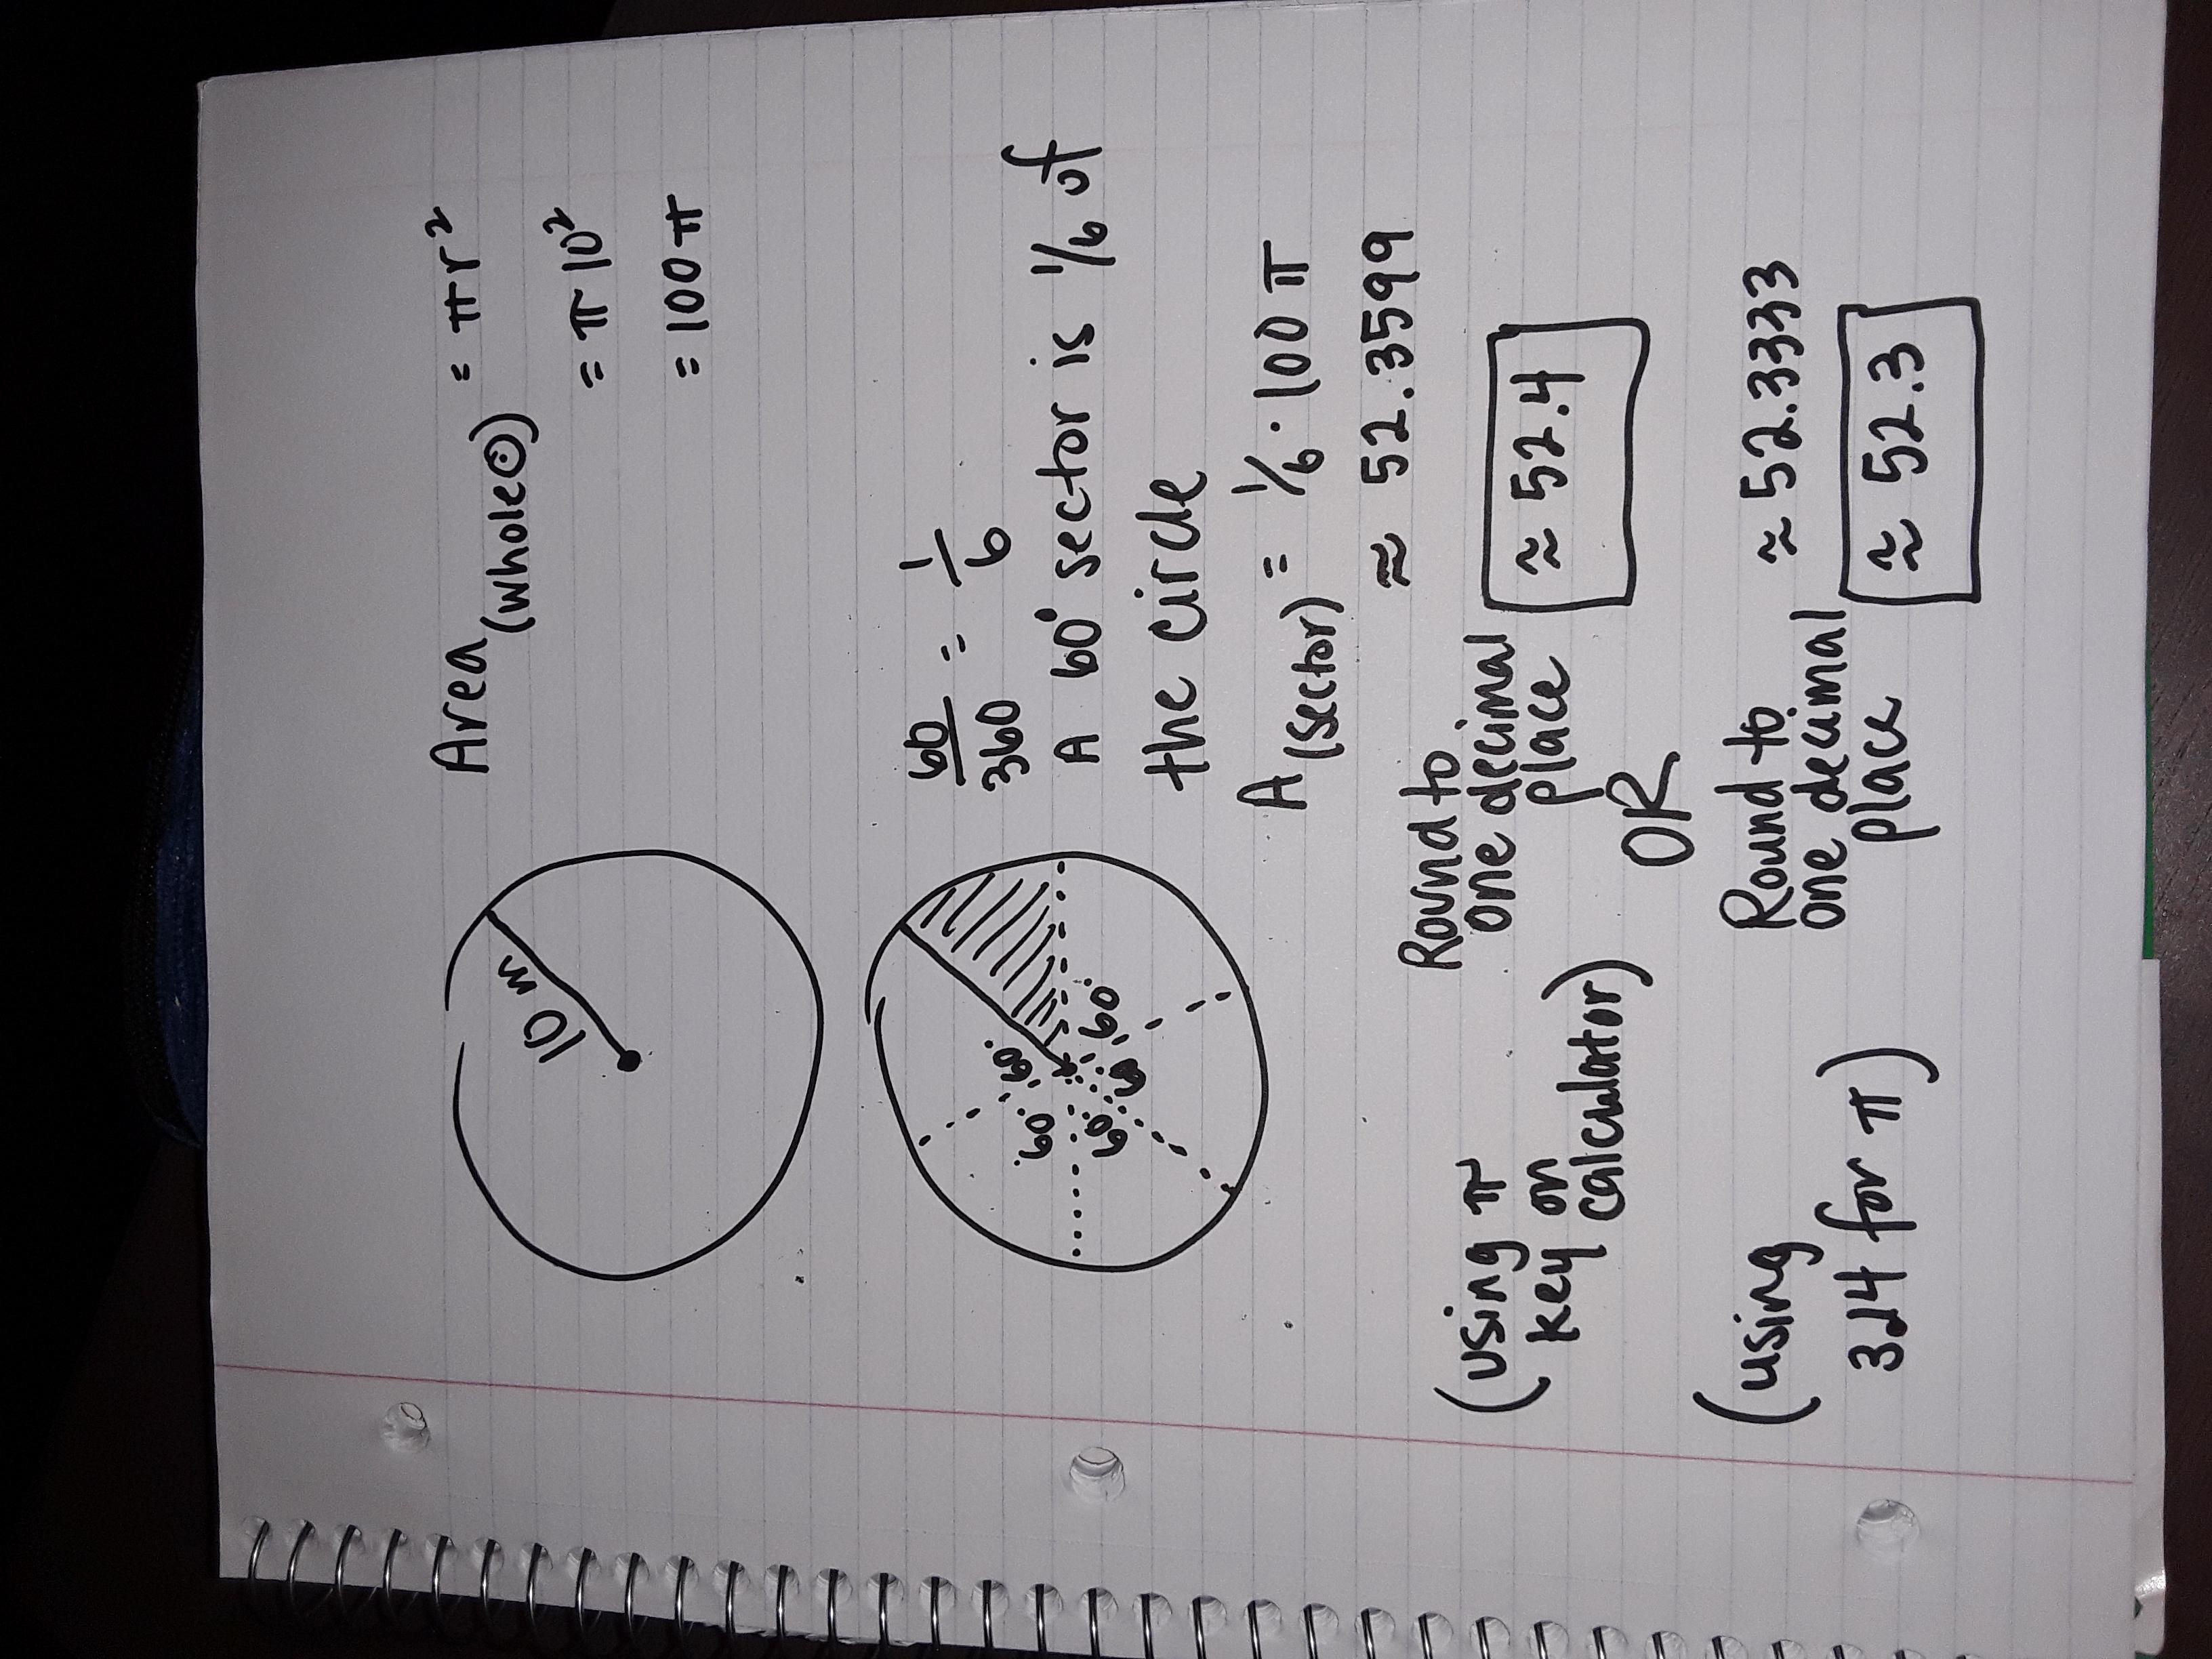 10 m
Area (whole⊙) = πr²
= π10²
= 100π
60/360 = 1/6
A 60° sector is 1/6 of
the circle
60
60
60
60
60
A (sector) = 1/6 · 100π
≈ 52.3599
(using π
key on
calculator)
Round to
one decimal
place
≈ 52.4
OR
(using
3.14 for π)
≈ 52.3333
Round to
one decimal
place
≈ 52.3